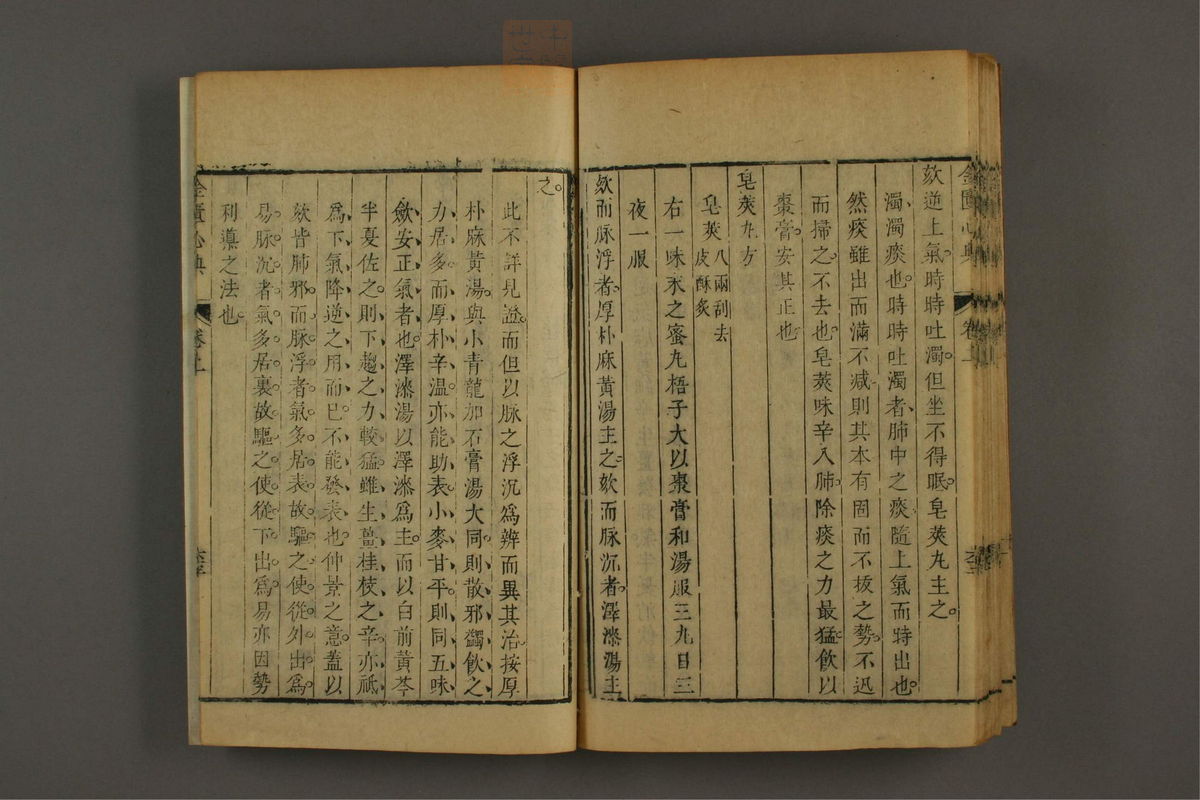 金匱心典 卷上
欬逆上氣時時吐濁但坐不得眠皂莢丸主之
濁濁痰也時時吐濁者肺中之痰隨上氣而時出也
然痰雖出而滿不減則其本有固而不拔之勢不迅
而掃之不去也皂莢味辛入肺除痰之力最猛飲以
棗膏安其正也
皂莢丸方
皂莢八兩刮去
皮酥炙
右一味末之蜜丸梧子大以棗膏和湯服三丸日三
夜一服
欬而脉浮者厚朴麻黃湯主之欬而脉沉者澤漆湯主
之
此不詳見證而但以脉之浮沉爲辨而異其治按厚
朴麻黃湯與小青龍加石膏湯大同則散邪蠲飲之
力居多而厚朴辛温亦能助表小麥甘平則同五味
斂安正氣者也澤漆湯以澤漆爲主而以白前黃芩
半夏佐之則下趨之力較猛雖生薑桂枝之辛亦祗
爲下氣降逆之用而已不能發表也仲景之意蓋以
欬皆肺邪而脉浮者氣多居表故驅之使從外出爲
易脉沉者氣多居裏故驅之使從下出爲易亦因勢
利導之法也
金匱心典 卷上